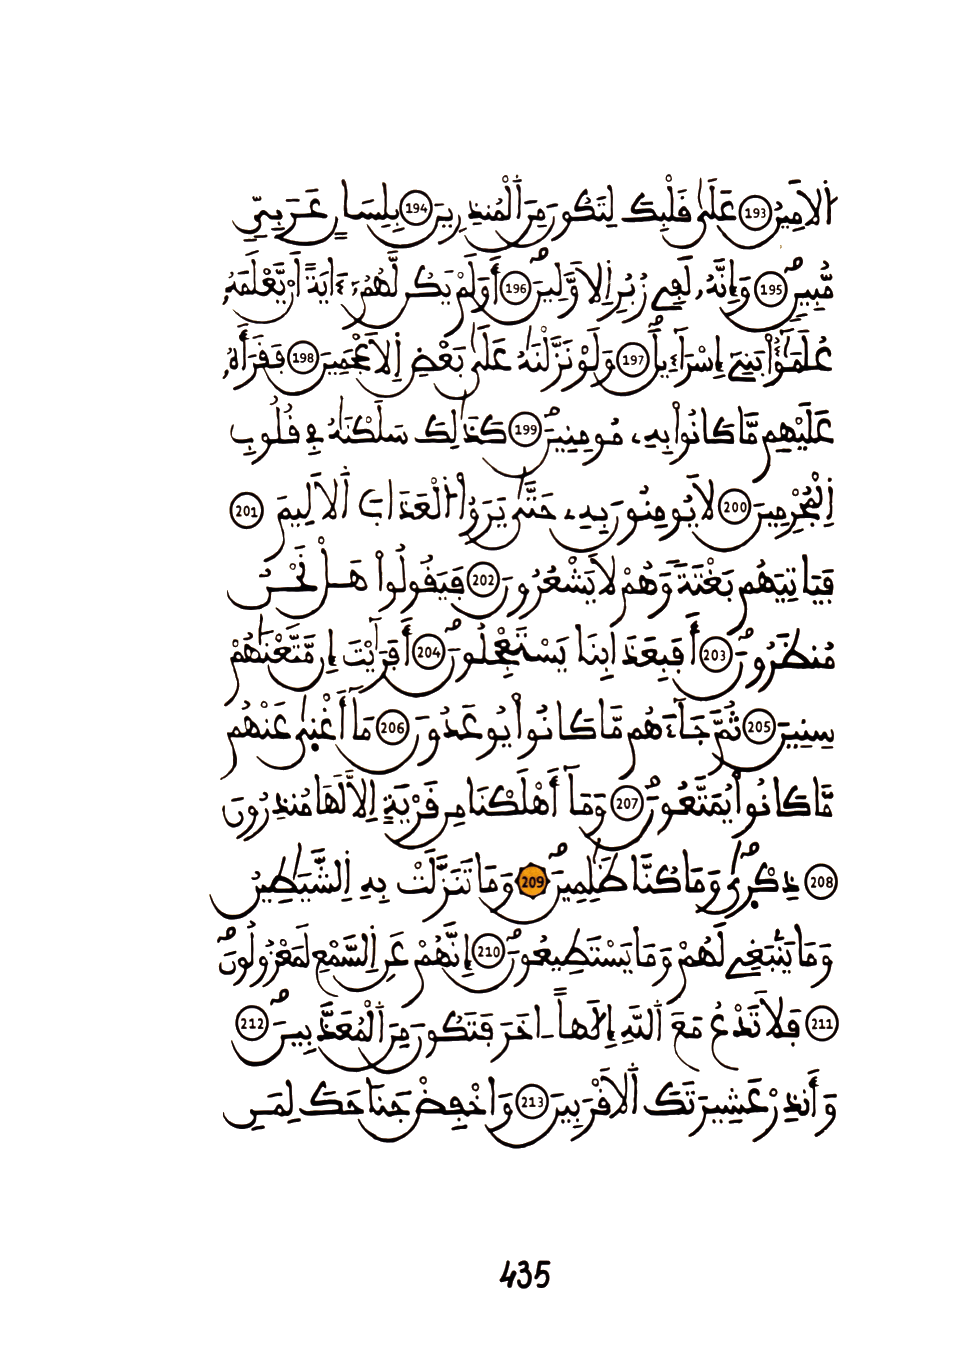 اُ۬لَامِينُ 193 عَلَىٰ قَلْبِكَ لِتَكُونَ مِنَ اَ۬لْمُنذِرِينَ 194 بِلِسَانٍ عَرَبِيّٖ
مُّبِينٖۖ 195 وَإِنَّهُۥ لَفِے زُبُرِ اِ۬لَاوَّلِينَۖ 196 أَوَلَمْ يَكُن لَّهُمُۥٓ ءَايَةً اَنْ يَّعْلَمَهُۥ
عُلَمَٰٓؤُاْ بَنِےٓ إِسْرَآءِيلَۖ 197 وَلَوْ نَزَّلْنَٰهُ عَلَىٰ بَعْضِ اِ۬لَاعْجَمِينَ 198 فَقَرَأَهُۥ
عَلَيْهِم مَّا كَانُواْ بِهِۦ مُومِنِينَۖ 199 كَذَٰلِكَ سَلَكْنَٰهُ فِے قُلُوبِ
اِ۬لْمُجْرِمِينَ 200 لَا يُومِنُونَ بِهِۦ حَتَّىٰ يَرَوُاْ اُ۬لْعَذَابَ اَ۬لَالِيمَ 201
فَيَاتِيَهُم بَغْتَةٗ وَهُمْ لَا يَشْعُرُونَ 202 فَيَقُولُواْ هَلْ نَحْنُ
مُنظَرُونَۖ 203 أَفَبِعَذَابِنَا يَسْتَعْجِلُونَۖ 204 أَفَرَٰٓيْتَ إِن مَّتَّعْنَٰهُمْ
سِنِينَ 205 ثُمَّ جَآءَهُم مَّا كَانُواْ يُوعَدُونَ 206 مَآ أَغْن۪ىٰ عَنْهُم
مَّا كَانُواْ يُمَتَّعُونَۖ 207 وَمَآ أَهْلَكْنَا مِن قَرْيَةٍ اِلَّا لَهَا مُنذِرُونَ
208 ذِكْر۪ىٰۖ وَمَا كُنَّا ظَٰلِمِينَۖ 209 وَمَا تَنَزَّلَتْ بِهِ اِ۬لشَّيَٰطِينُ
وَمَا يَنۢبَغِے لَهُمْ وَمَا يَسْتَطِيعُونَۖ 210 إِنَّهُمْ عَنِ اِ۬لسَّمْعِ لَمَعْزُولُونَۖ
211 فَلَا تَدْعُ مَعَ اَ۬للَّهِ إِلَٰهاً ـ اخَرَ فَتَكُونَ مِنَ اَ۬لْمُعَذَّبِينَۖ 212
وَأَنذِرْ عَشِيرَتَكَ اَ۬لَاقْرَبِينَ 213 وَاخْفِضْ جَنَاحَكَ لِمَنِ
435